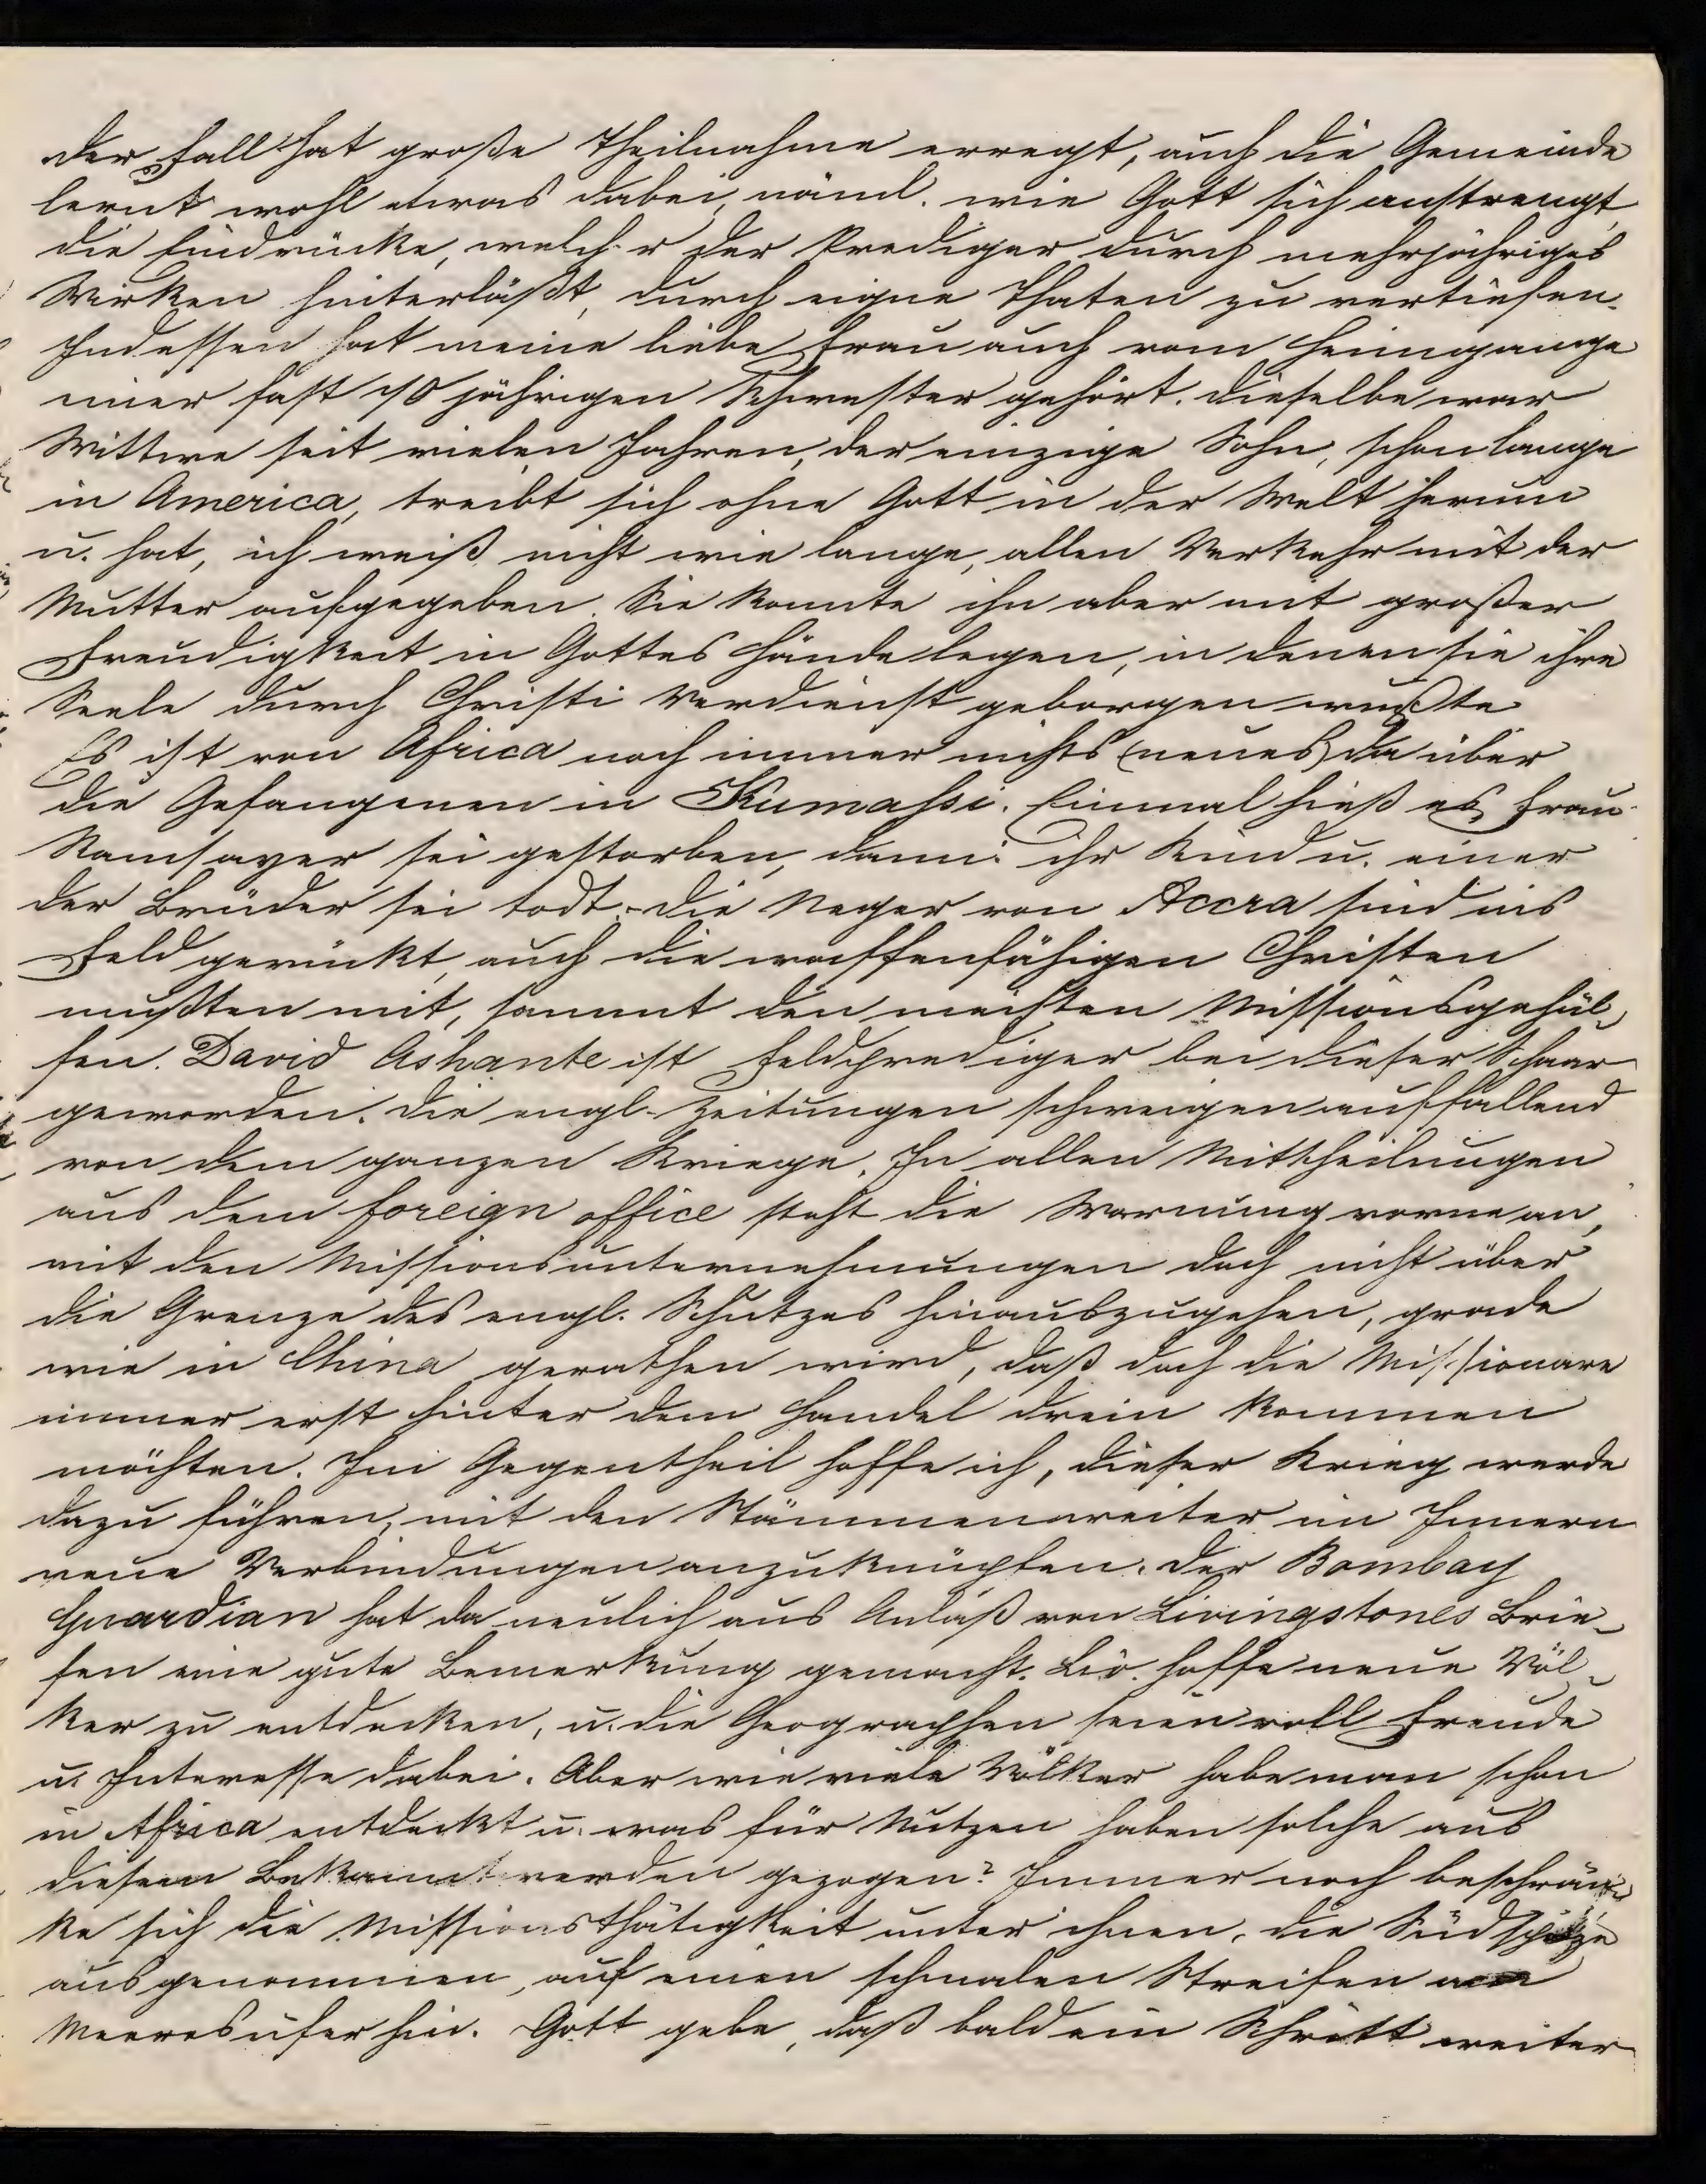 Der Fall hat große Theilnahme erregt, auch die Gemeinde
lernt wohl etwas dabei, näml. wie Gott sich anstrengt,
die Eindrücke, welche der Prediger durch mehrjähriges
Wirken hinterläßt, durch eigne Thaten zu vertiefen.
Indessen hat meine liebe Frau auch vom Heimgange
einer fast 70 jährigen Schwester gehört. Dieselbe war
Wittwe seit vielen Jahren, der einzige Sohn, schon lange
in America, treibt sich ohne Gott in der Welt herum
u. hat, ich weiß nicht wie lange, allen Verkehr mit der
Mutter aufgegeben. Sie konnte ihn aber mit großer
Freudigkeit in Gottes Hände legen, in denen sie ihre
Seele durch Christi Verdienst geborgen wußte
Es ist von Africa noch immer nichts (neues) da über
die Gefangenen in Kumassi. Einmal hieß es, Frau
Ramsayer sei gestorben, dann: ihr Kind u. einer
der Brüder sei todt. - Die Neger von Accra sind ins
Feld gerückt, auch die waffenfähigen Christen
mußten mit, sammt den meisten Missionsgehül-
fen. David Ashante ist Feldprediger bei dieser Schaar
geworden. Die engl. Zeitungen schweigen auffallend
von dem ganzen Kriege. In allen Mittheilungen
aus dem foreign office steht die Warnung vorne an,
mit den Missionsunternehmungen doch nicht über
die Grenze des engl. Schutzes hinauszugehen, grade
wie in China gerathen wird, daß doch die Missionare
immer erst hinter dem Handel drein kommen
möchten. Im Gegentheil hoffe ich, dieser Krieg werde
dazu führen, mit den Stämmen weiter im Innern
neue Verbindungen anzuknüpfen. Der Bombay
Guardian hat da neulich aus Anlaß von Livingstones Brie-
fen eine gute Bemerkung gemacht. Liv. hoffe neue Völ-
ker zu entdecken, u. die Geographen seien voll Freude
u. Interesse dabei. Aber wie viele Völker habe man schon
in Africa entdeckt u. was für Nutzen haben solche aus
diesem Bekanntwerden gezogen? Immer noch beschrän-
ke sich die Missionsthätigkeit unter ihnen, die Südspitze
ausgenommen, auf einen schmalen Streifen am
Meeresufer hin. Gott gebe, daß bald ein Schritt weiter